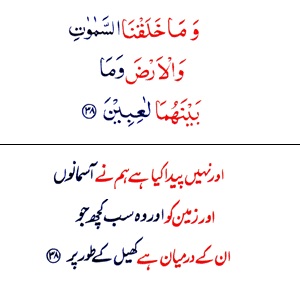 وَ مَا خَلَقْنَا السَّمٰوٰتِ
وَالْاَرْضَ وَمَا
بَيْنَهُمَا لٰعِبِيْنَ ﴿۳۸﴾
اور نہیں پیدا کیا ہے ہم نے آسمانوں
اور زمین کو اور وہ سب کچھ جو
ان کے درمیان ہے کھیل کے طور پر ﴿۳۸﴾